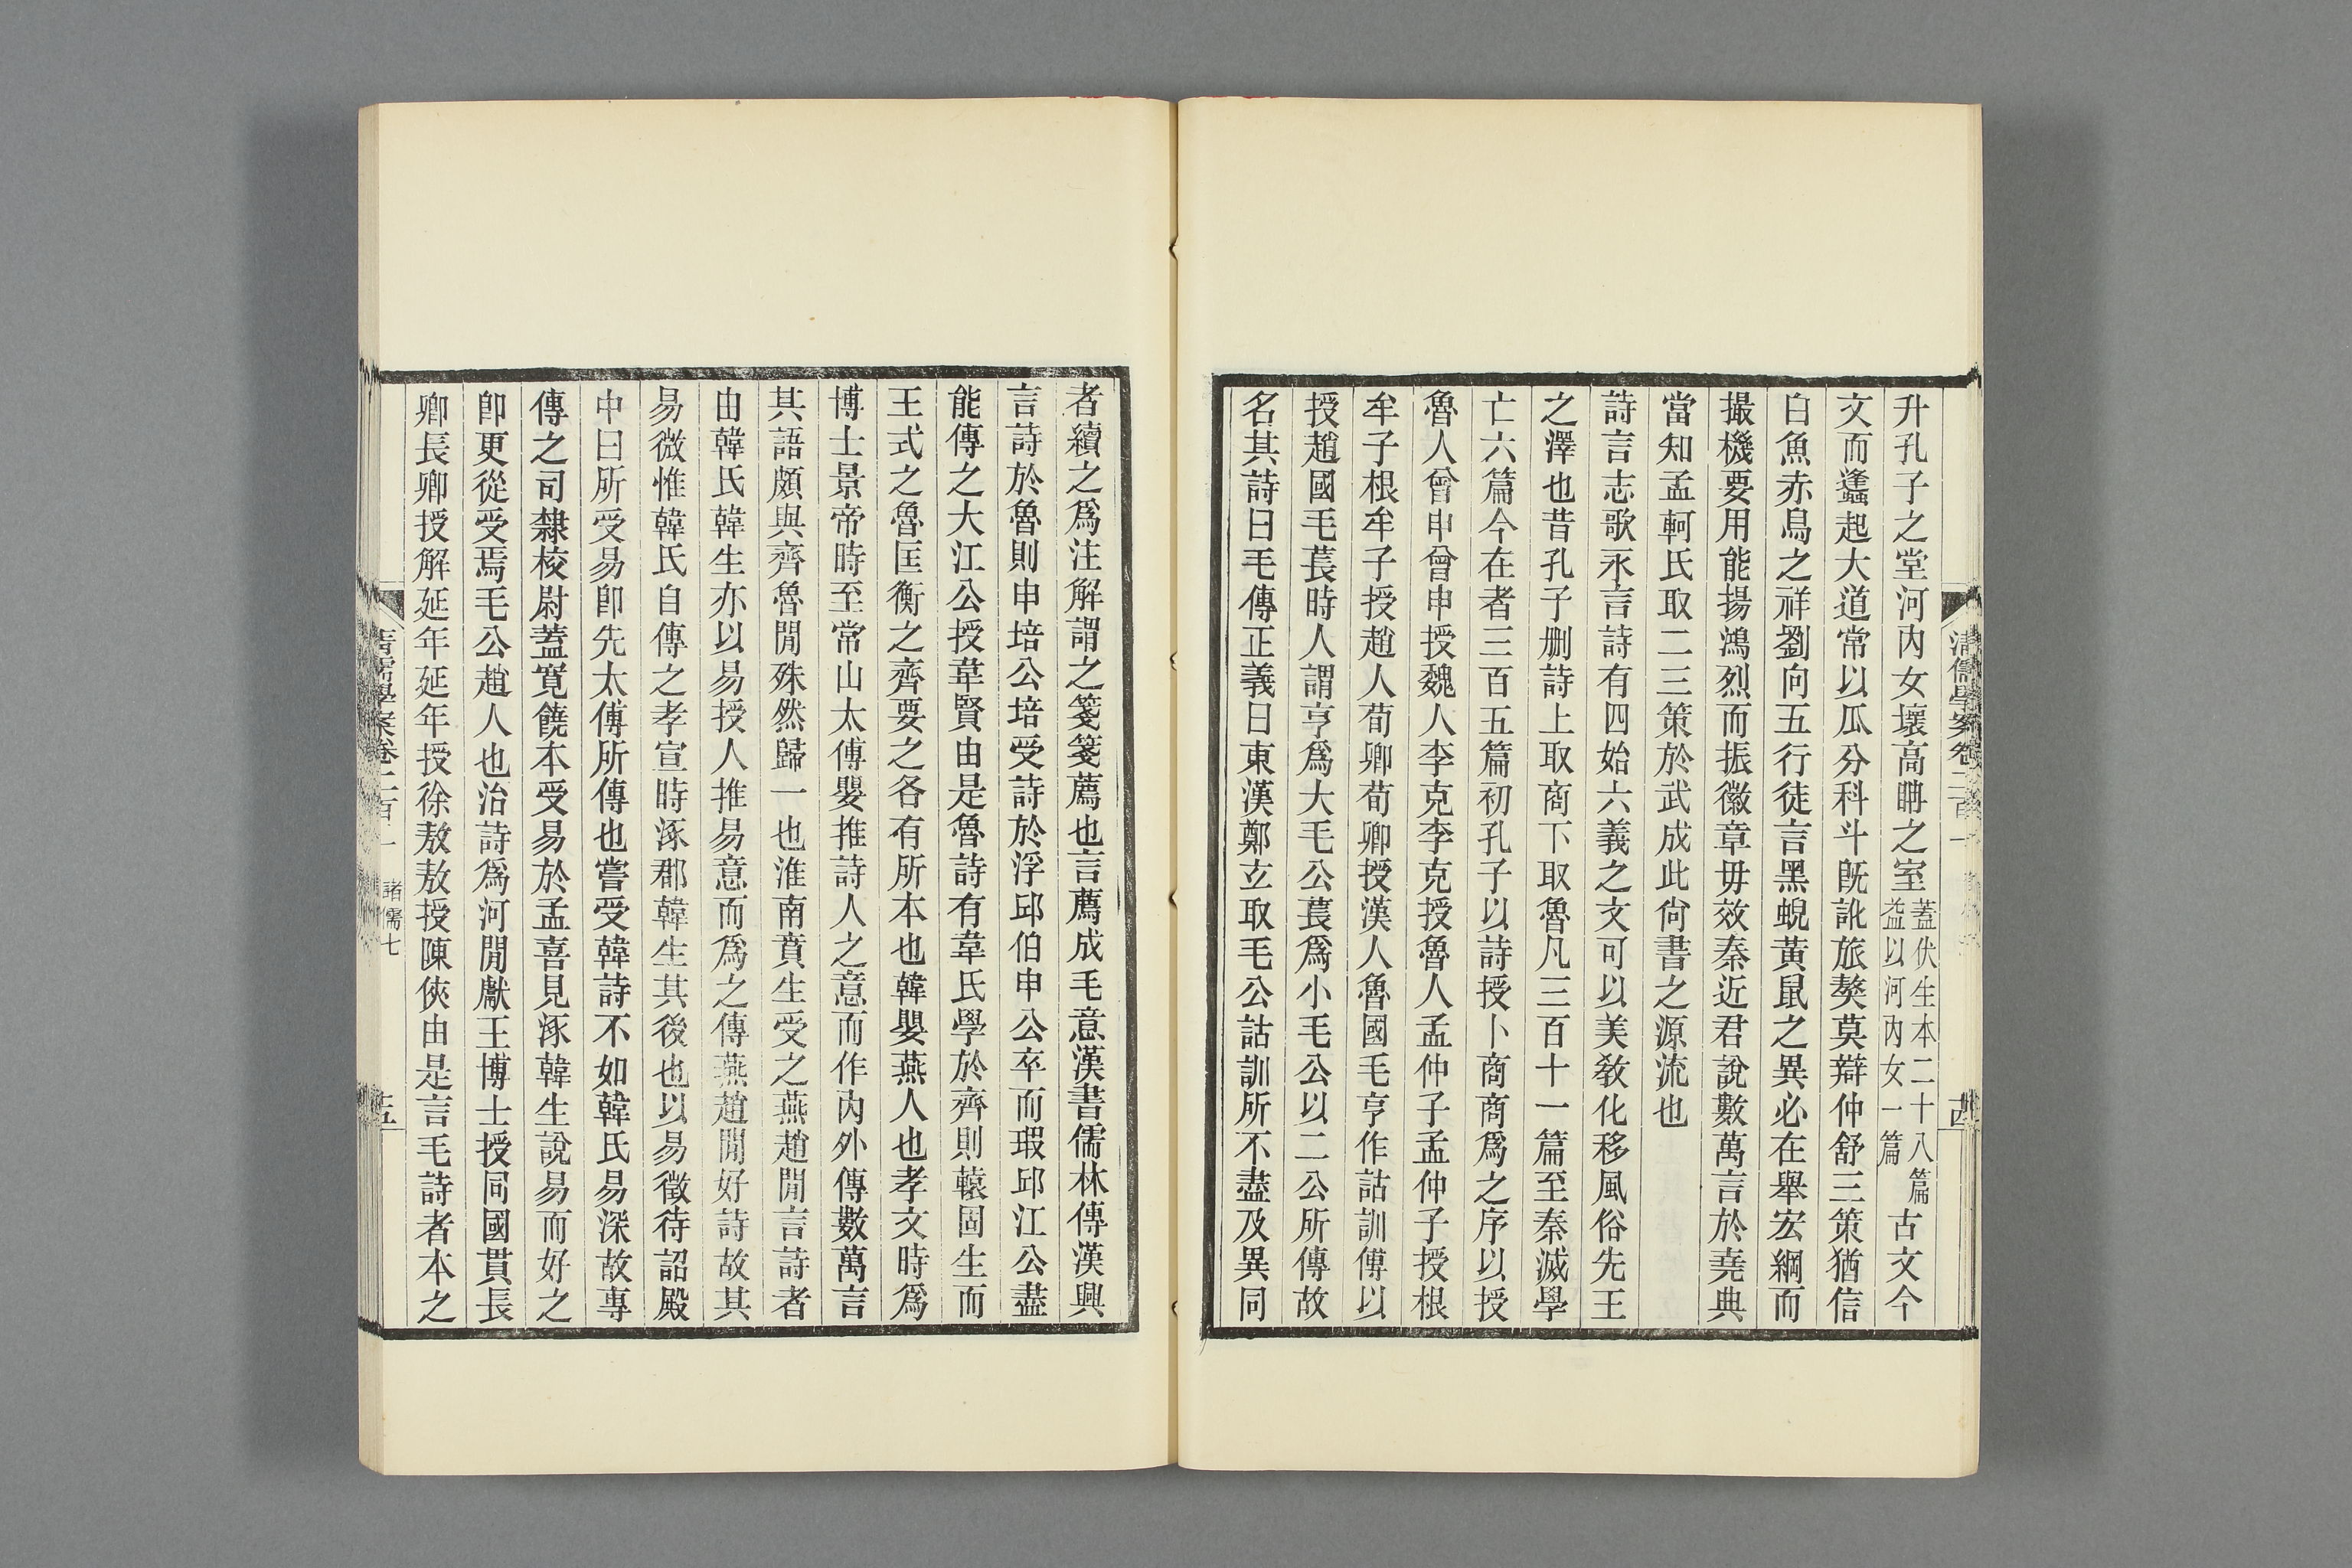 清儒學案卷二百一
古
升孔子之堂河內女壞高閈之室蓋伏生本二十八篇益以河內女一篇古文今
文而蠭起大道常以瓜分科斗旣訛旅獒莫辯仲舒三策猶信
白魚赤烏之祥劉向五行徒言黑蜺黃鼠之異必在舉宏綱而
撮機要用能揚鴻烈而振徽章毋效秦近君說數萬言於堯典
當知孟軻氏取二三策於武成此尙書之源流也
詩言志歌永言詩有四始六義之文可以美敎化移風俗先王
之澤也昔孔子刪詩上取商下取魯凡三百十一篇至秦滅學
亡六篇今在者三百五篇初孔子以詩授卜商商爲之序以授
魯人曾申曾申授魏人李克李克授魯人孟仲子孟仲子授根
牟子根牟子授趙人荀卿荀卿授漢人魯國毛亨作詁訓傳以
授趙國毛萇時人謂亨爲大毛公萇爲小毛公以二公所傳故
名其詩曰毛傳正義曰東漢鄭玄取毛公詁訓所不盡及異同
者續之爲注解謂之箋箋薦也言薦成毛意漢書儒林傳漢興
言詩於魯則申培公培受詩於浮邱伯申公卒而瑕邱江公盡
能傳之大江公授韋賢由是魯詩有韋氏學於齊則轅固生而
王式之魯匡衡之齊要之各有所本也韓嬰燕人也孝文時爲
博士景帝時至常山太傅嬰推詩人之意而作內外傳數萬言
其語頗與齊魯閒殊然歸一也淮南賁生受之燕趙閒言詩者
由韓氏韓生亦以易授人推易意而爲之傳燕趙閒好詩故其
易微惟韓氏自傳之孝宣時涿郡韓生其後也以易徵待詔殿
中曰所受易卽先太傅所傳也嘗受韓詩不如韓氏易深故專
傳之司隸校尉蓋寬饒本受易於孟喜見涿韓生說易而好之
卽更從受焉毛公趙人也治詩爲河閒獻王博士授同國貫長
卿長卿授解延年延年授徐敖敖授陳俠由是言毛詩者本之
清儒學案卷二百一 諸儒七